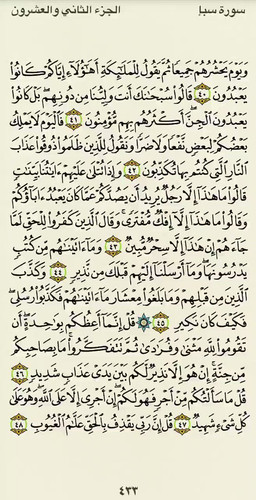 سورة سبإ الجزء الثاني والعشرون
وَيَوْمَ يَحْشُرُهُمْ جَمِيعًا ثُمَّ يَقُولُ لِلْمَلَٰٓئِكَةِ أَهَٰٓؤُلَآءِ إِيَّاكُمْ كَانُوا۟
يَعْبُدُونَ ٤٠ قَالُوا۟ سُبْحَٰنَكَ أَنتَ وَلِيُّنَا مِن دُونِهِم ۖ بَلْ كَانُوا۟
يَعْبُدُونَ ٱلْجِنَّ ۖ أَكْثَرُهُم بِهِم مُّؤْمِنُونَ ٤١ فَٱلْيَوْمَ لَا يَمْلِكُ
بَعْضُكُمْ لِبَعْضٍ نَّفْعًا وَلَا ضَرًّا وَنَقُولُ لِلَّذِينَ ظَلَمُوا۟ ذُوقُوا۟ عَذَابَ
ٱلنَّارِ ٱلَّتِى كُنتُم بِهَا تُكَذِّبُونَ ٤٢ وَإِذَا تُتْلَىٰ عَلَيْهِمْ ءَايَٰتُنَا بَيِّنَٰتٍ
قَالُوا۟ مَا هَٰذَآ إِلَّا رَجُلٌ يُرِيدُ أَن يَصُدَّكُمْ عَمَّا كَانَ يَعْبُدُ ءَابَآؤُكُمْ
وَقَالُوا۟ مَا هَٰذَآ إِلَّآ إِفْكٌ مُّفْتَرًى ۚ وَقَالَ ٱلَّذِينَ كَفَرُوا۟ لِلْحَقِّ لَمَّا
جَآءَهُمْ إِنْ هَٰذَآ إِلَّا سِحْرٌ مُّبِينٌ ٤٣ وَمَآ ءَاتَيْنَٰهُم مِّن كُتُبٍ
يَدْرُسُونَهَا ۖ وَمَآ أَرْسَلْنَآ إِلَيْهِمْ قَبْلَكَ مِن نَّذِيرٍ ٤٤ وَكَذَّبَ
ٱلَّذِينَ مِن قَبْلِهِمْ وَمَا بَلَغُوا۟ مِعْشَارَ مَآ ءَاتَيْنَٰهُمْ فَكَذَّبُوا۟ رُسُلِى ۖ
فَكَيْفَ كَانَ نَكِيرِ ٤٥ ۞ قُلْ إِنَّمَآ أَعِظُكُم بِوَٰحِدَةٍ ۖ أَن
تَقُومُوا۟ لِلَّهِ مَثْنَىٰ وَفُرَٰدَىٰ ثُمَّ تَتَفَكَّرُوا۟ ۚ مَا بِصَاحِبِكُم
مِّن جِنَّةٍ ۚ إِنْ هُوَ إِلَّا نَذِيرٌ لَّكُم بَيْنَ يَدَىْ عَذَابٍ شَدِيدٍ ٤٦
قُلْ مَا سَأَلْتُكُم مِّنْ أَجْرٍ فَهُوَ لَكُمْ ۖ إِنْ أَجْرِىَ إِلَّا عَلَى ٱللَّهِ ۖ وَهُوَ عَلَىٰ
كُلِّ شَىْءٍ شَهِيدٌ ٤٧ قُلْ إِنَّ رَبِّى يَقْذِفُ بِٱلْحَقِّ عَلَّٰمُ ٱلْغُيُوبِ ٤٨
٤٣٣